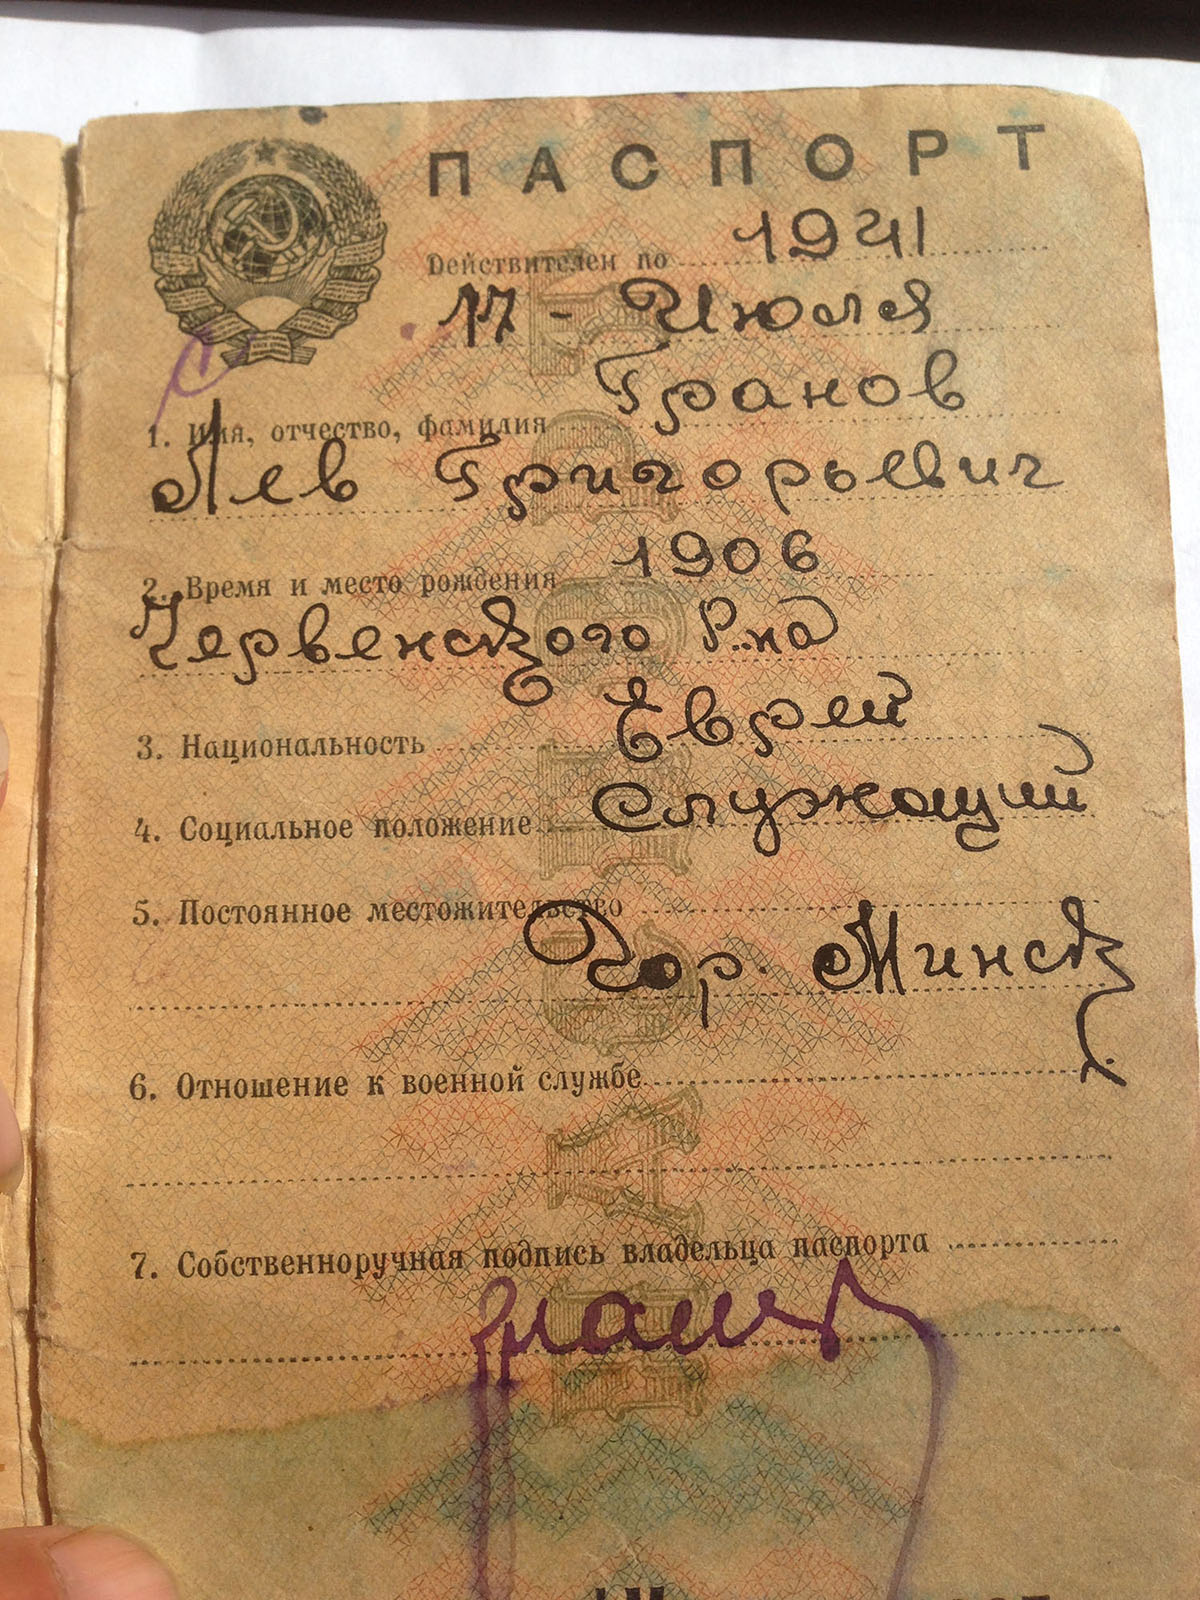 ПАСПОРТ
Действителен по 1941
17 - Июля
Гранов
1. Имя, отчество, фамилия
Лев Григорьевич
2. Время и место рождения 1906
Червенского Р-на
3. Национальность Еврей
4. Социальное положение Служащий
5. Постоянное местожительство
Гор. Минск
6. Отношение к военной службе
7. Собственноручная подпись владельца паспорта
ПАСПОРТ